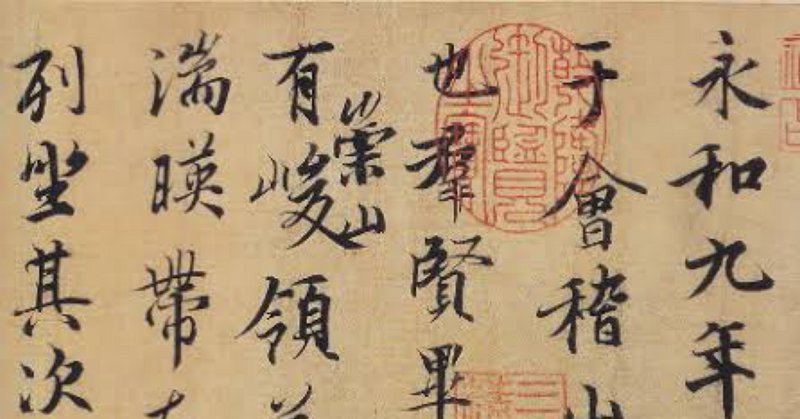 永和九年
于會稽山
也羣賢畢
崇山
有峻領
湍暎帶
列坐其次
乾隆御覽之寶